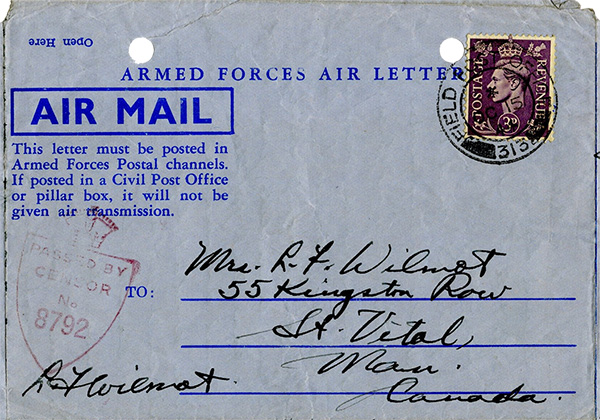 Open Here
ARMED FORCES AIR LETTER
AIR MAIL
POSTAGE REVENUE
3D
FIELD
313
This letter must be posted in
Armed Forces Postal channels.
If posted in a Civil Post Office
or pillar box, it will not be
given air transmission.
PASSED BY
CENSOR
No
8792
TO:
Mrs. L. F. Wilmot
55 Kingston Row
St. Vital,
Man.
Canada.
L F Wilmot.